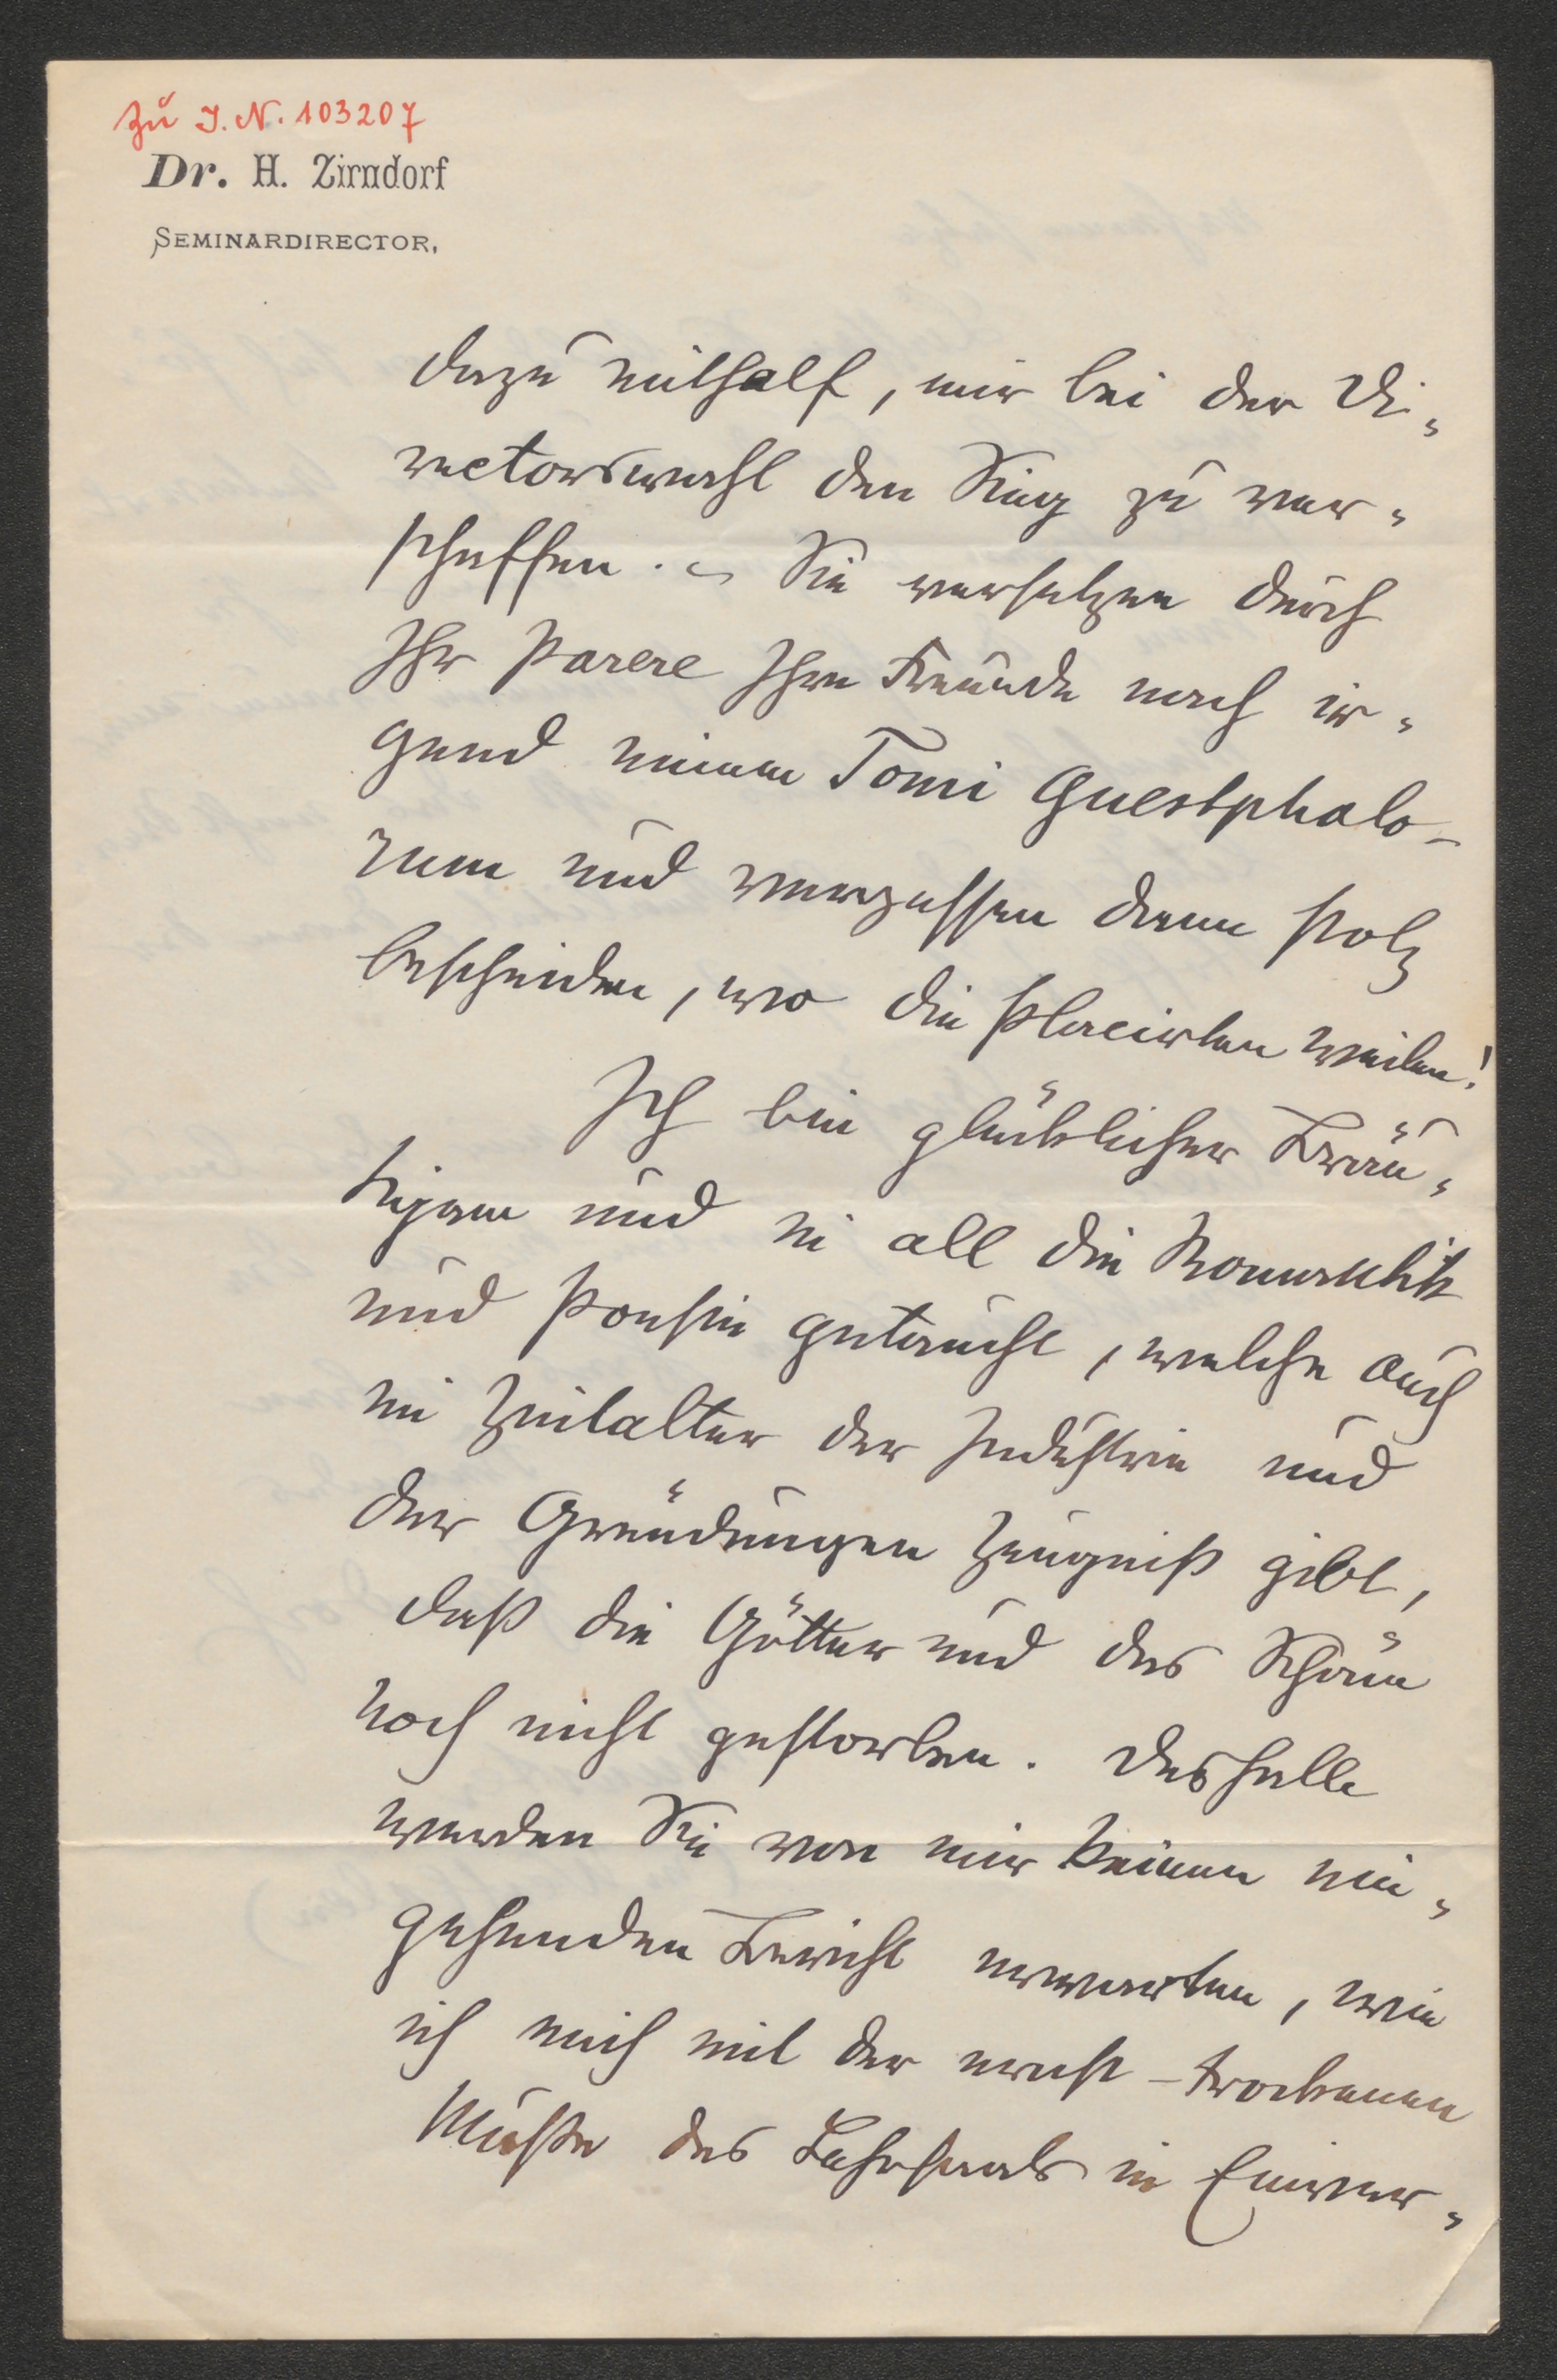 Zu I. N. 103207
Dr. H. Zirndorf
SEMINARDIRECTOR,
dazu mithalf, mir bei der Di-
rectorswahl den Sieg zu ver-
schaffen. – Sie versetzen durch
Ihr Parere Ihre Freunde nach ir-
gend einem Tomi Guestphalo-
rum und vergessen dann stolz
bescheiden, wo die Placirten weilen!
Ich bin glücklicher Bräu-
tigam und in all die Romantik
und Poesie getaucht, welche auch
im Zeitalter der Industrie und
der Gründungen Zeugniß gibt,
daß die Götter und das Schöne
noch nicht gestorben. Deshalb
werden Sie von mir keinen ein-
gehenden Bericht erwarten, wie
ich mich mit der ernst-trockenen
Muße des Lehrsaals in Einver-